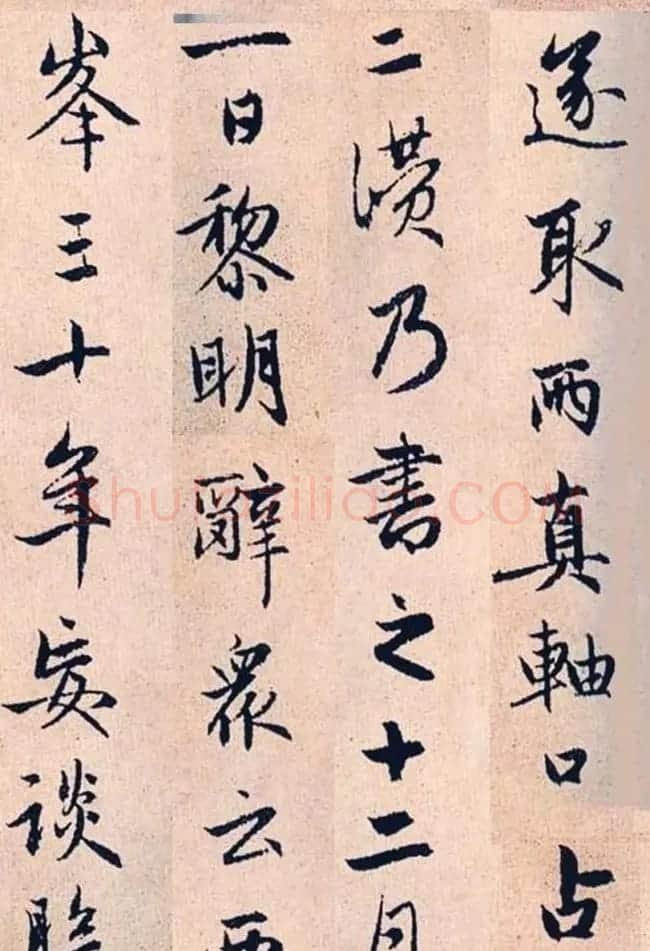 遂取两真軸口占
二讚乃書之十二月
一日黎明辭衆云
峯三十年妄談